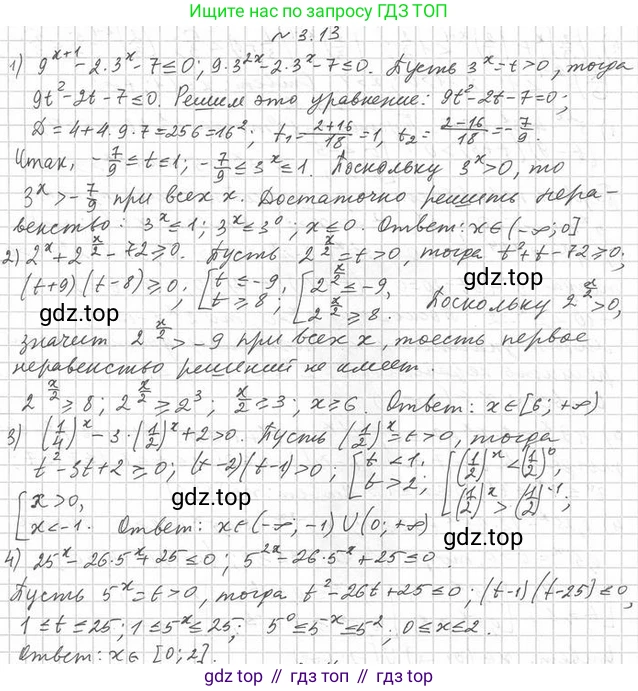 Больше решений по запросу ГДЗ ТОП
№ 3.13
1) 9^{x+1} - 2·3^x - 7 ≤ 0; 9·3^{2x} - 2·3^x - 7 ≤ 0. Пусть 3^x = t > 0, тогда
9t² - 2t - 7 ≤ 0. Решим это уравнение: 9t² - 2t - 7 = 0;
D = 4 + 4·9·7 = 256 = 16²; t₁ = (2+16)/18 = 1, t₂ = (2-16)/18 = -7/9.
Итак, -7/9 ≤ t ≤ 1; -7/9 ≤ 3^x ≤ 1. Поскольку 3^x > 0, то
3^x > -7/9 при всех x. Достаточно решить нера-
венство: 3^x ≤ 1; 3^x ≤ 3^0; x ≤ 0. Ответ: x ∈ (-∞; 0]
2) 2^x + 2^{x/2} - 72 ≥ 0. Пусть 2^{x/2} = t > 0, тогда t² + t - 72 ≥ 0;
(t+9)(t-8) ≥ 0; [t ≤ -9, t ≥ 8; [2^{x/2} ≤ -9, 2^{x/2} ≥ 8. Поскольку 2^{x/2} > 0,
gdz.top gdz.top
значит 2^{x/2} > -9 при всех x, тоесть первое
неравенство решений не имеет.
2^{x/2} ≥ 8; 2^{x/2} ≥ 2³; x/2 ≥ 3; x ≥ 6. Ответ: x ∈ [6; +∞)
3) (1/4)^x - 3·(1/2)^x + 2 > 0. Пусть (1/2)^x = t > 0, тогда
t² - 3t + 2 ≥ 0; (t-2)(t-1) > 0; [t < 1, t > 2; [(1/2)^x < (1/2)^0, (1/2)^x > (1/2)^{-1};
gdz.top
[x > 0, x < -1. Ответ: x ∈ (-∞; -1) ∪ (0; +∞)
gdz.top
4) 25^{-x} - 26·5^{-x} + 25 ≤ 0; 5^{-2x} - 26·5^{-x} + 25 ≤ 0.
Пусть 5^{-x} = t > 0, тогда t² - 26t + 25 ≤ 0; (t-1)(t-25) ≤ 0,
1 ≤ t ≤ 25; 1 ≤ 5^{-x} ≤ 25; 5^0 ≤ 5^{-x} ≤ 5²; 0 ≤ x ≤ 2.
Ответ: x ∈ [0; 2].
gdz.top // gdz.top // gdz.top // gdz.top